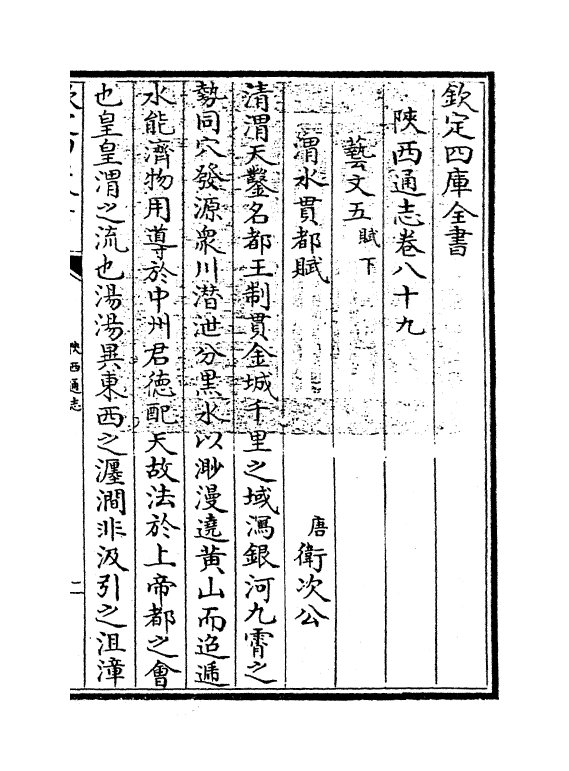 欽定四庫全書
陜西通志卷八十九
藝文五賦下
渭水貫都賦
唐衛次公
清渭天鑿名都王制貫金城千里之域瀉銀河九霄之
勢同穴發源衆川潜泄分黒水以渺漫遶黄山而迢遞
水能濟物用導於中州君徳配天故法於上帝都之㑹
也皇皇渭之流也湯湯異東西之瀍澗非汲引之沮漳
陜西通志